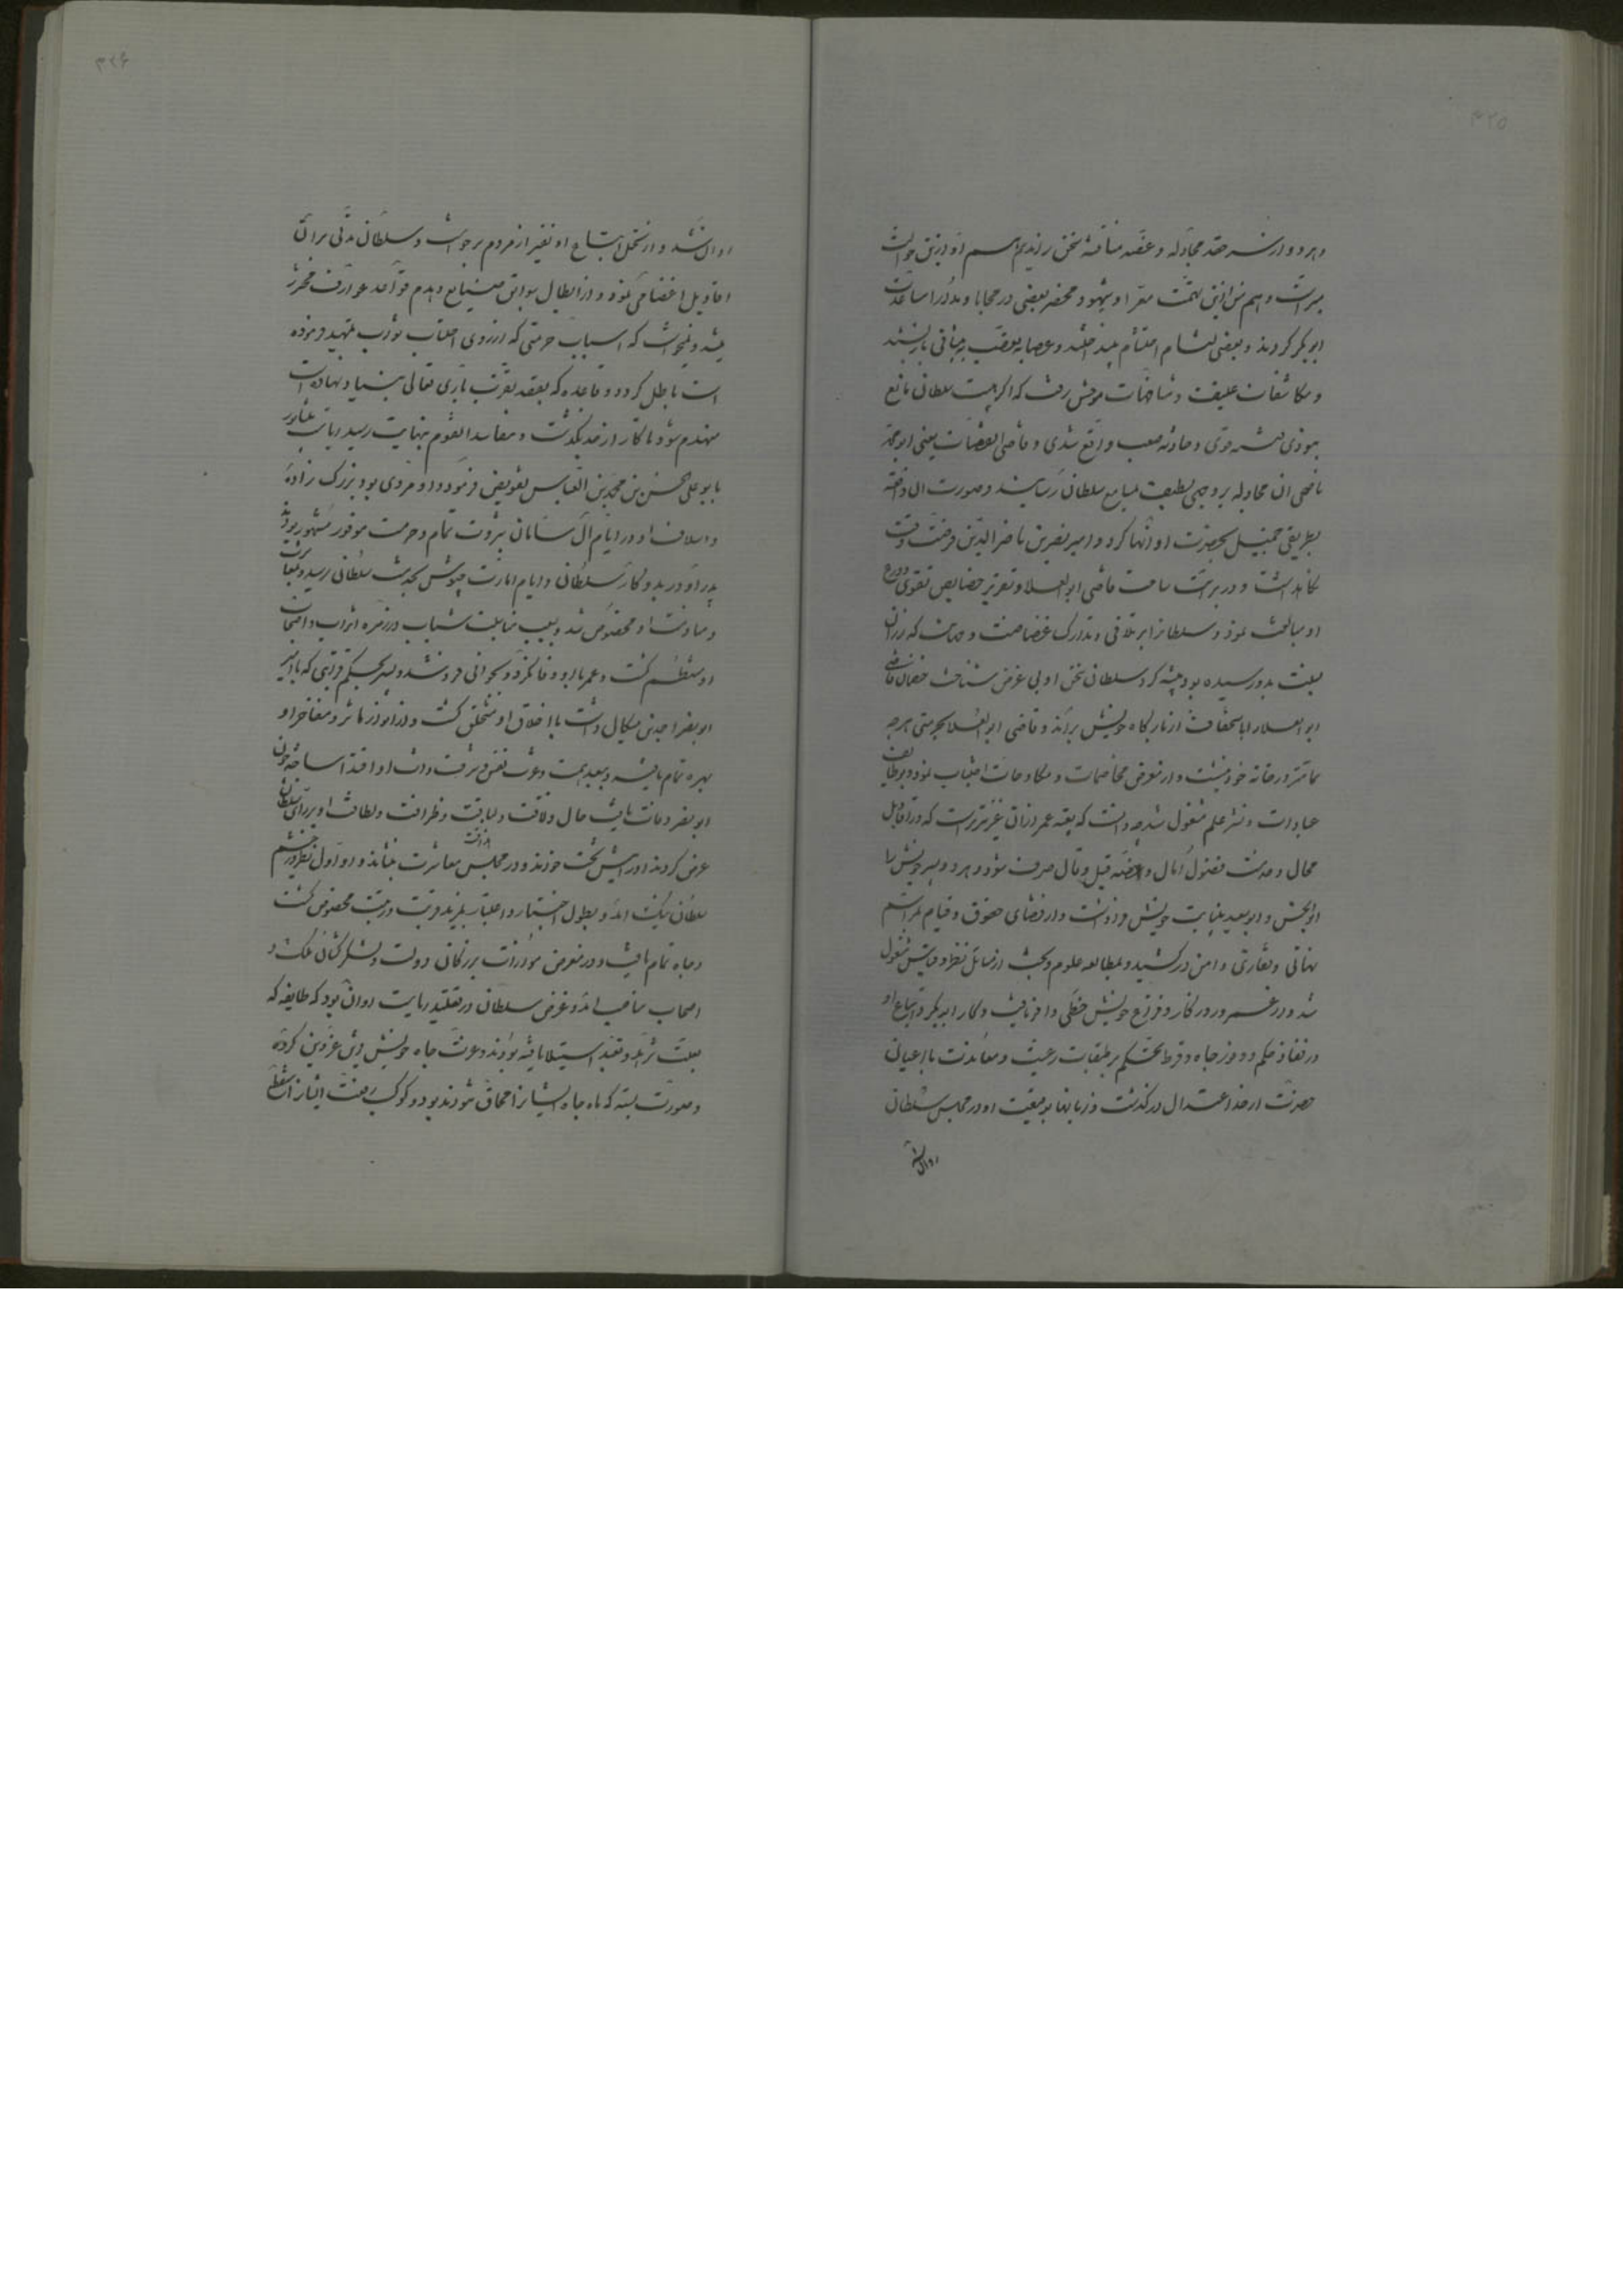 ۴۲۵
و هر دو از سر حقد مجادله و عقد مناقشه سخن راندیم اسم او ازین حوالت
مبراست و اسم من ازین تهمت معرا و شهود و محضر بعضی در محابا و مدارا مساعدت
ابوبکر کردند و بعضی لثام احتشام بینداختند و عصابه تعصب بر پیشانی باز بستند
و مکاشفات عنیف و مشاغبات موحش رفت که اگر هیبت سلطانی مانع
نبودی فتنه قوی و حادثه صعب واقع شدی و قاضی القضات یعنی ابو محمد
ناصحی آن مجادله بر وجهی لطیف بمسامع سلطان رسانید و صورت آن واقعه
بطریقی جمیل بحضرت او انها کرد و امیر نصر بن ناصر الدین فرصت وقت
نگاه داشت و در براءت ساحت قاضی ابو العلا و تقریر خصایص تقوی و ورع
او مبالغت نمود و سلطانرا بر تلافی و تدارک غضاضت و مهانت که در آن
مجلس بدو رسیده بود بعث کرد سلطان سخن او بی غرض شناخت خصمان قاضی
ابو العلا را باستخفاف از بارگاه خویش براند و قاضی ابو العلا بحرمتی هرچه
تمامتر در خانه خود بنشست و از تعرض مخاصمات و مکاوحات اجتناب نمود و بوظایف
عبادات و نشر علم مشغول شد چه دانست که بقیه عمر از آن عزیزترست که در اقاویل
محال و مدت فضول آمال و عرضه قیل و قال صرف شود و هر دو پسر خویش را
ابو الحسن و ابو سعید بنیابت خویش فرا داشت و از قضای حقوق و قیام بمراسم
تهانی و تعازی دامن درکشید و بمطالعه علوم و بحث از مسایل نظر و قیاس مشغول
شد و در غمر روزگار و فراغ خویش حظی وافر یافت و کار ابوبکر و اتباع او
در نفاذ حکم و وفور جاه و فرط تحکم بر طبقات رعیت و معاندت با اعیان
حضرت از حد اعتدال درگذشت و زبانها بوقیعت او در مجلس سلطان
روان شد
۴۲۶
روان شد و از تحمل اتباع او نفیر از مردم برخواست و سلطان مدتی بر آن
اقاویل اغضا می نمود و از ابطال سوابق صنایع و هدم قواعد عوارف محترز
میشد و نمیخواست که اسباب حرمتی که از روی احتساب ثواب تمهید فرموده
است باطل گردد و قاعده که بعقد تقرب باری تعالی بنیاد نهاده است
منهدم شود تا کار از حد بگذشت و مفاسد القوم بنهایت رسید ریاست نیشابور
بابو علی الحسن بن محمد بن العباس تفویض فرمود و او مردی بود بزرگ زاده
و اسلاف او در ایام آل سامان بثروت تمام و حرمت موفور مشهور بودند
پدر او در بدو کار سلطانی و ایام امارت جیوش بخدمت سلطانی رسید و بمعاشرت
و منادمت او مخصوص شد و بسبب مناسبت شباب در زمره اتراب و اصحاب
او منتظم گشت و عمر با او وفا نکرد و بجوانی فرو شد و پسر بحکم قرابتی که با امیر
ابو نصر احمد بن میکال داشت با اخلاق او متخلق گشت و از انوار مآثر و مفاخر او
بهره تمام یافت و ببعد همت و عزت نفس و شرف ذات او اقتدا ساخت چون
ابو نصر وفات یافت حال ولاقت و لباقت و ظرافت و لطافت او بر رای سلطان
عرض کردند او را پیش تخت خواندند و در مجلس معاشرت بنشاند و او اول نظر در چشم
سلطان نیک آمد و بطول اختبار و اعتبار بمزید قربت و رتبت مخصوص گشت
و جاه تمام یافت و در معرض موازات بزرگان دولت و لشکرکشان ملک و
اصحاب مناصب آمد و غرض سلطان در تقلید ریاست او آن بود که طایفه که
بعلت تزهد و تعبد استیلا یافته بودند و عزت جاه خویش
و صورت بسته که ماه جاه ایشانرا محاق نتواند بود و کوکب رفعت ایشانرا سقوط